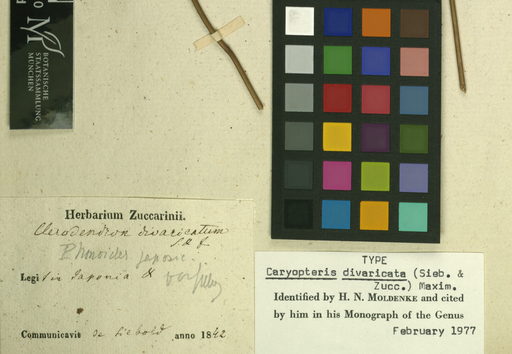 BOTANISCHE
STAATSSAMMLUNG
MÜNCHEN
Herbarium Zuccarinii.
Clerodendron divaricatum
S. & Z.
japonic.
Legit in Japonia
Communicavit de Siebold anno 1842
TYPE
Caryopteris divaricata (Sieb. &
Zucc.) Maxim.
Identified by H. N. MOLDENKE and cited
by him in his Monograph of the Genus
February 1977